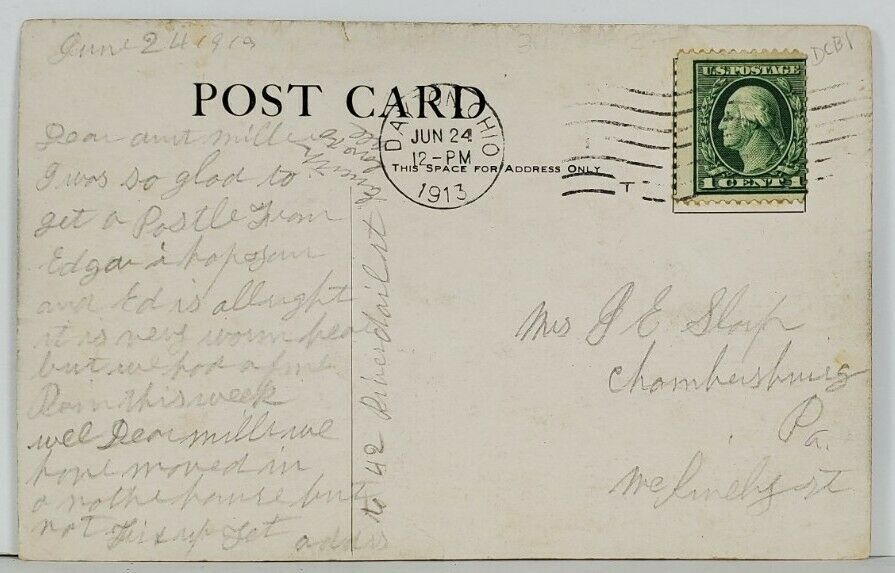 June 24 1913
DCB1
POST CARD
THIS SPACE FOR ADDRESS ONLY
DAYTON OHIO
JUN 24
12-PM
1913
T
U.S. POSTAGE
1 CENT 1
Dear aunt millie
I was so glad to
get a Postle from
Edgar i hop you
and Ed is allright
it is very worm hear
but we had a fine
Rain this week
well Dear millie we
hope moved in
a nothe house but
not fix up Jet addres
to 42 Riverdail st
Mrs J E Slarp
Chambersburg
Pa.
st